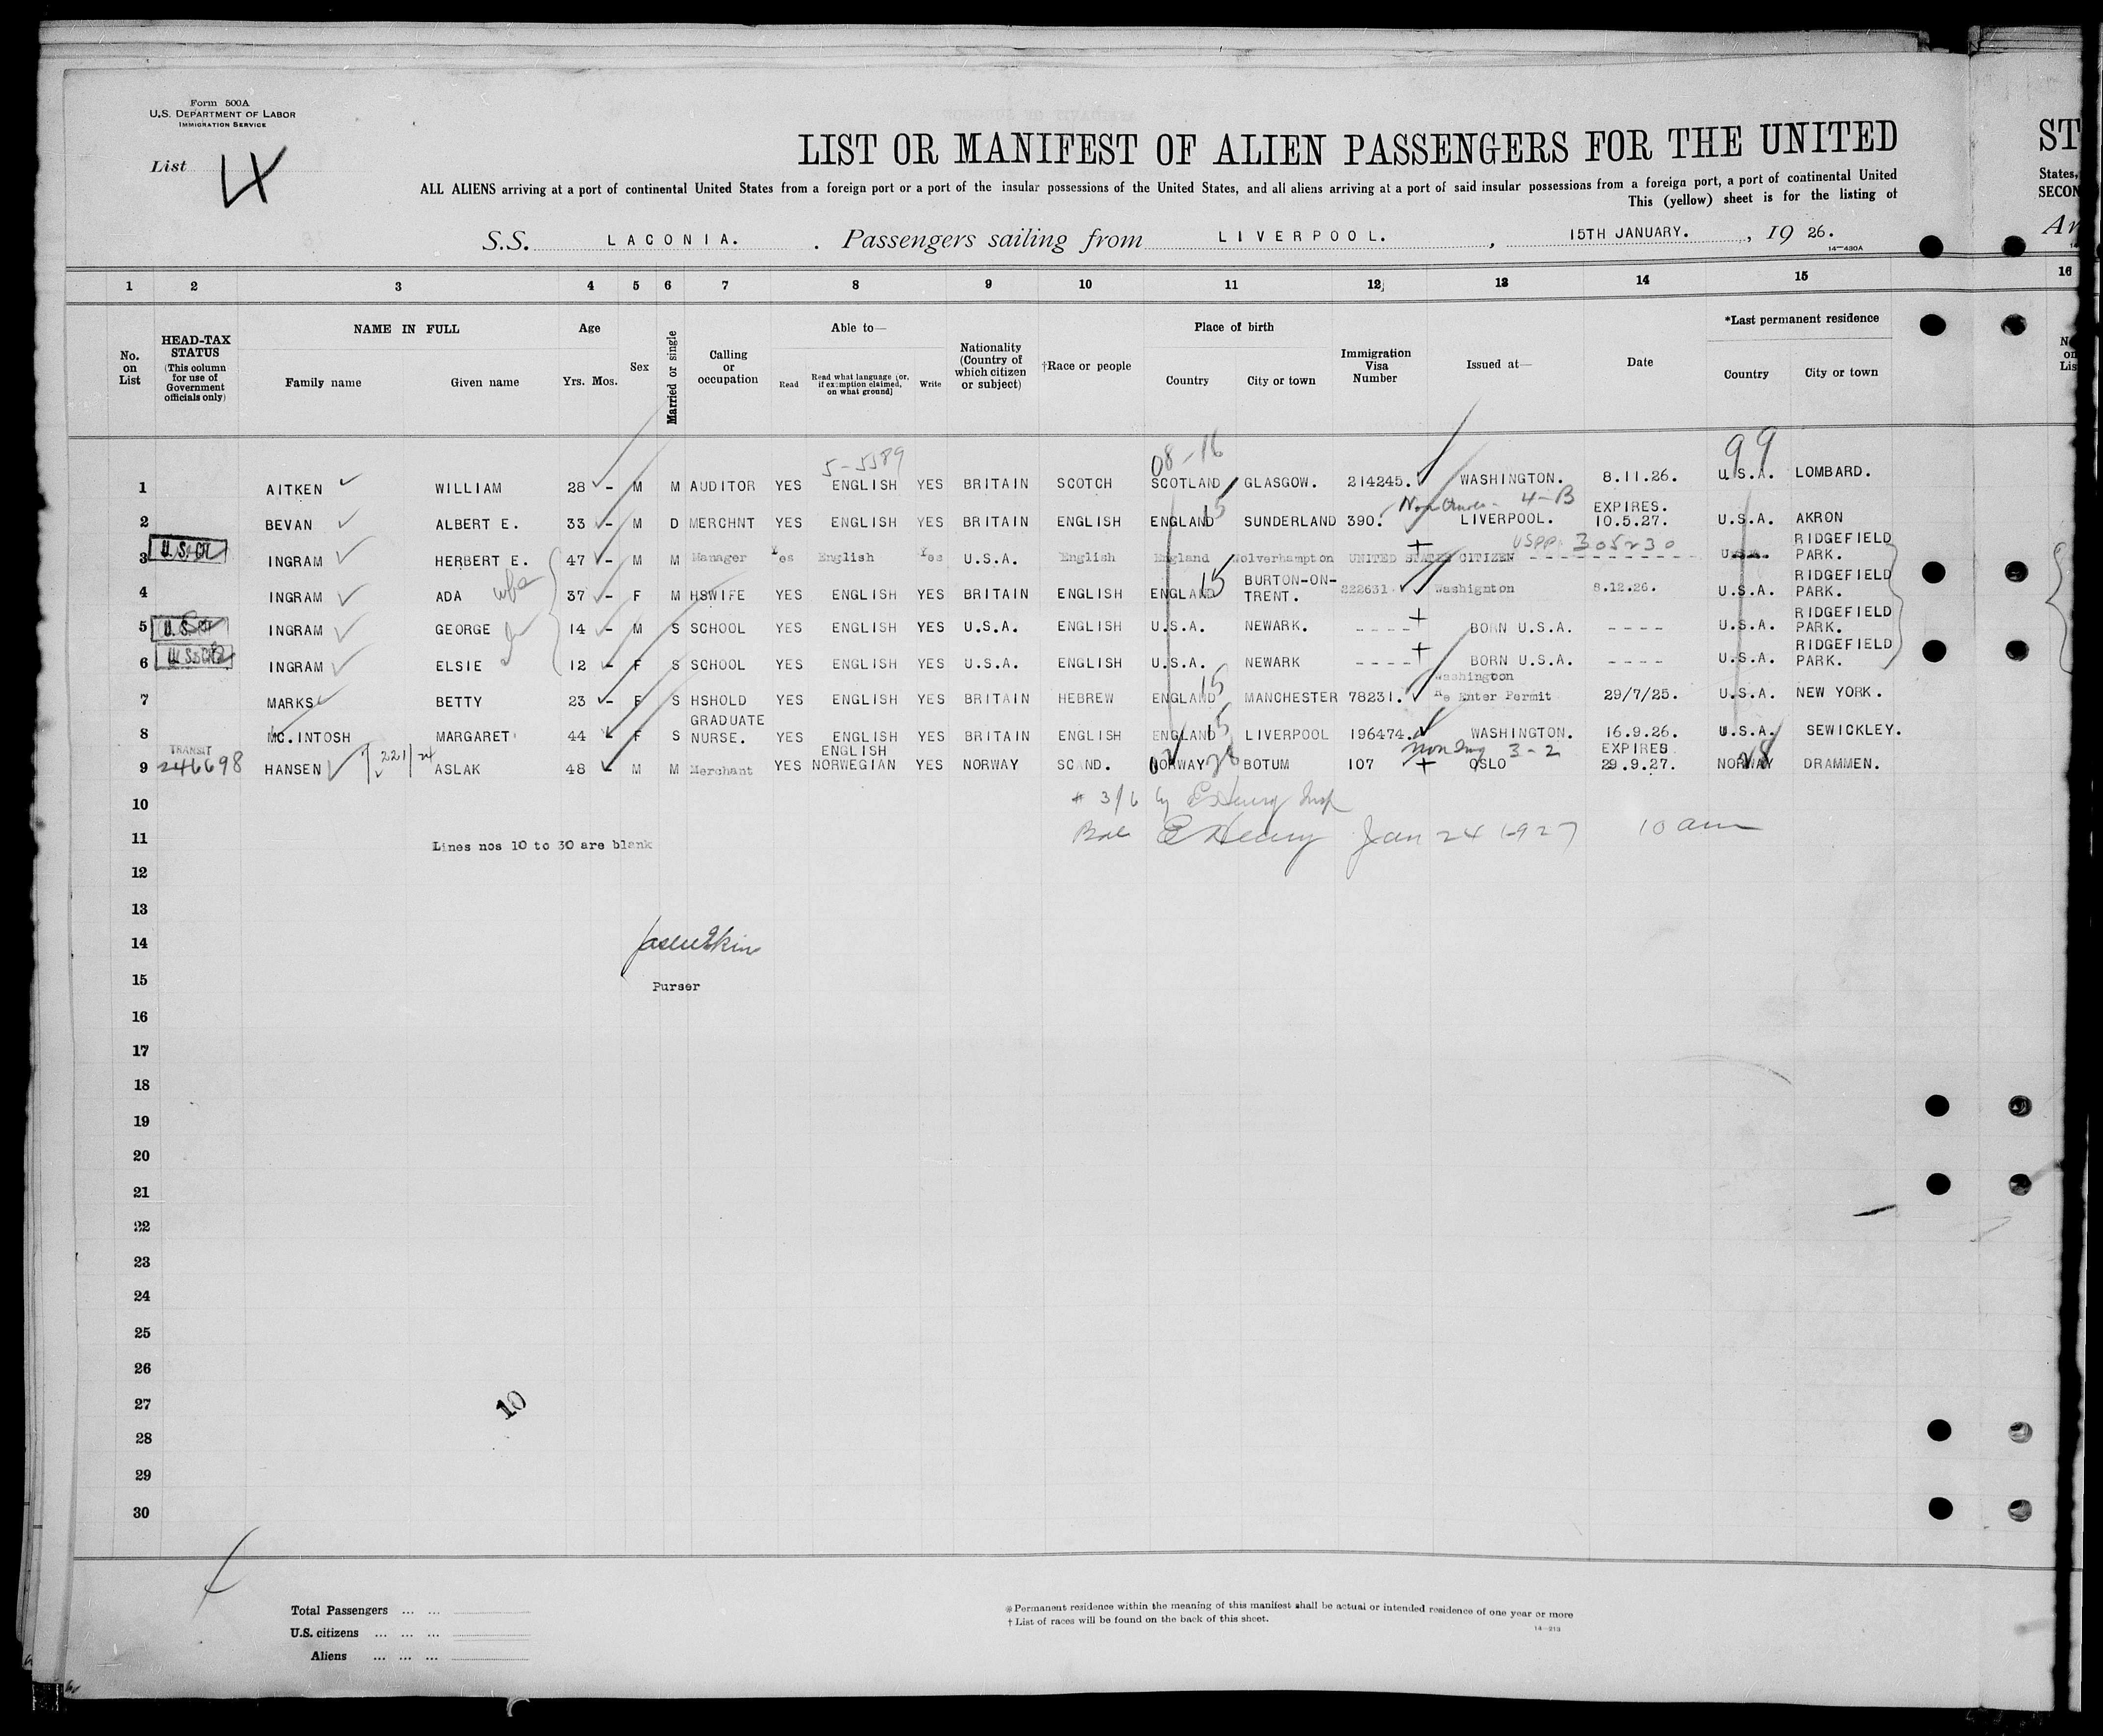 Form 500A
U.S. DEPARTMENT OF LABOR
IMMIGRATION SERVICE
List 4
LIST OR MANIFEST OF ALIEN PASSENGERS FOR THE UNITED
ST
ALL ALIENS arriving at a port of continental United States from a foreign port or a port of the insular possessions of the United States, and all aliens arriving at a port of said insular possessions from a foreign port, a port of continental United
States,
This (yellow) sheet is for the listing of
SECON
S.S. LACONIA. Passengers sailing from LIVERPOOL. , 15TH JANUARY. , 19 26.
14-430A
1 2 3 4 5 6 7 8 9 10 11 12 13 14 15 16
No. on List
HEAD-TAX STATUS
(This column for use of Government officials only)
NAME IN FULL
Family name Given name
Age
Yrs. Mos.
Sex
Married or single
Calling or occupation
Able to—
Read
Read what language [or, if exemption claimed, on what ground]
Write
Nationality (Country of which citizen or subject)
†Race or people
Place of birth
Country City or town
Immigration Visa Number
Issued at—
Date
*Last permanent residence
Country City or town
5-5589 08-16 99
1 AITKEN WILLIAM 28 - M M AUDITOR YES ENGLISH YES BRITAIN SCOTCH SCOTLAND GLASGOW. 214245. WASHINGTON. 8.11.26. U.S.A. LOMBARD.
4-B EXPIRES.
2 BEVAN ALBERT E. 33 - M D MERCHNT YES ENGLISH YES BRITAIN ENGLISH ENGLAND 15 SUNDERLAND 390. LIVERPOOL. 10.5.27. U.S.A. AKRON
USPP. 305230
3 INGRAM HERBERT E. 47 - M M Manager Yes English Yes U.S.A. English England Wolverhampton UNITED STATES CITIZEN - - - - U.S.A. RIDGEFIELD PARK.
4 INGRAM ADA wife 37 - F M HSWIFE YES ENGLISH YES BRITAIN ENGLISH ENGLAND 15 BURTON-ON-TRENT. 222631 Washignton 8.12.26. U.S.A. RIDGEFIELD PARK.
5 INGRAM GEORGE 14 - M S SCHOOL YES ENGLISH YES U.S.A. ENGLISH U.S.A. NEWARK. - - - - BORN U.S.A. - - - - U.S.A. RIDGEFIELD PARK.
6 INGRAM ELSIE 12 - F S SCHOOL YES ENGLISH YES U.S.A. ENGLISH U.S.A. NEWARK - - - - BORN U.S.A. - - - - U.S.A. RIDGEFIELD PARK.
Washington
7 MARKS BETTY 23 - F S HSHOLD YES ENGLISH YES BRITAIN HEBREW ENGLAND 15 MANCHESTER 78231. Re Enter Permit 29/7/25. U.S.A. NEW YORK.
8 MC.INTOSH MARGARET 44 F S GRADUATE NURSE. YES ENGLISH YES BRITAIN ENGLISH ENGLAND 15 LIVERPOOL 196474. WASHINGTON. 16.9.26. U.S.A. SEWICKLEY.
TRANSIT 3-2 EXPIRES
9 246698 HANSEN 221/24 ASLAK 48 - M M Merchant YES ENGLISH NORWEGIAN YES NORWAY SCAND. NORWAY 28 BOTUM 107 OSLO 29.9.27. NORWAY 28 DRAMMEN.
10
11 Lines nos 10 to 30 are blank E Henry Jan 24 1927 10 am
12
13
14
15 Purser
16
17
18
19
20
21
22
23
24
25
26
27 10
28
29
30
Total Passengers ... ...
U.S. citizens ... ... ...
Aliens ... ... ...
*Permanent residence within the meaning of this manifest shall be actual or intended residence of one year or more
† List of races will be found on the back of this sheet.
14-213